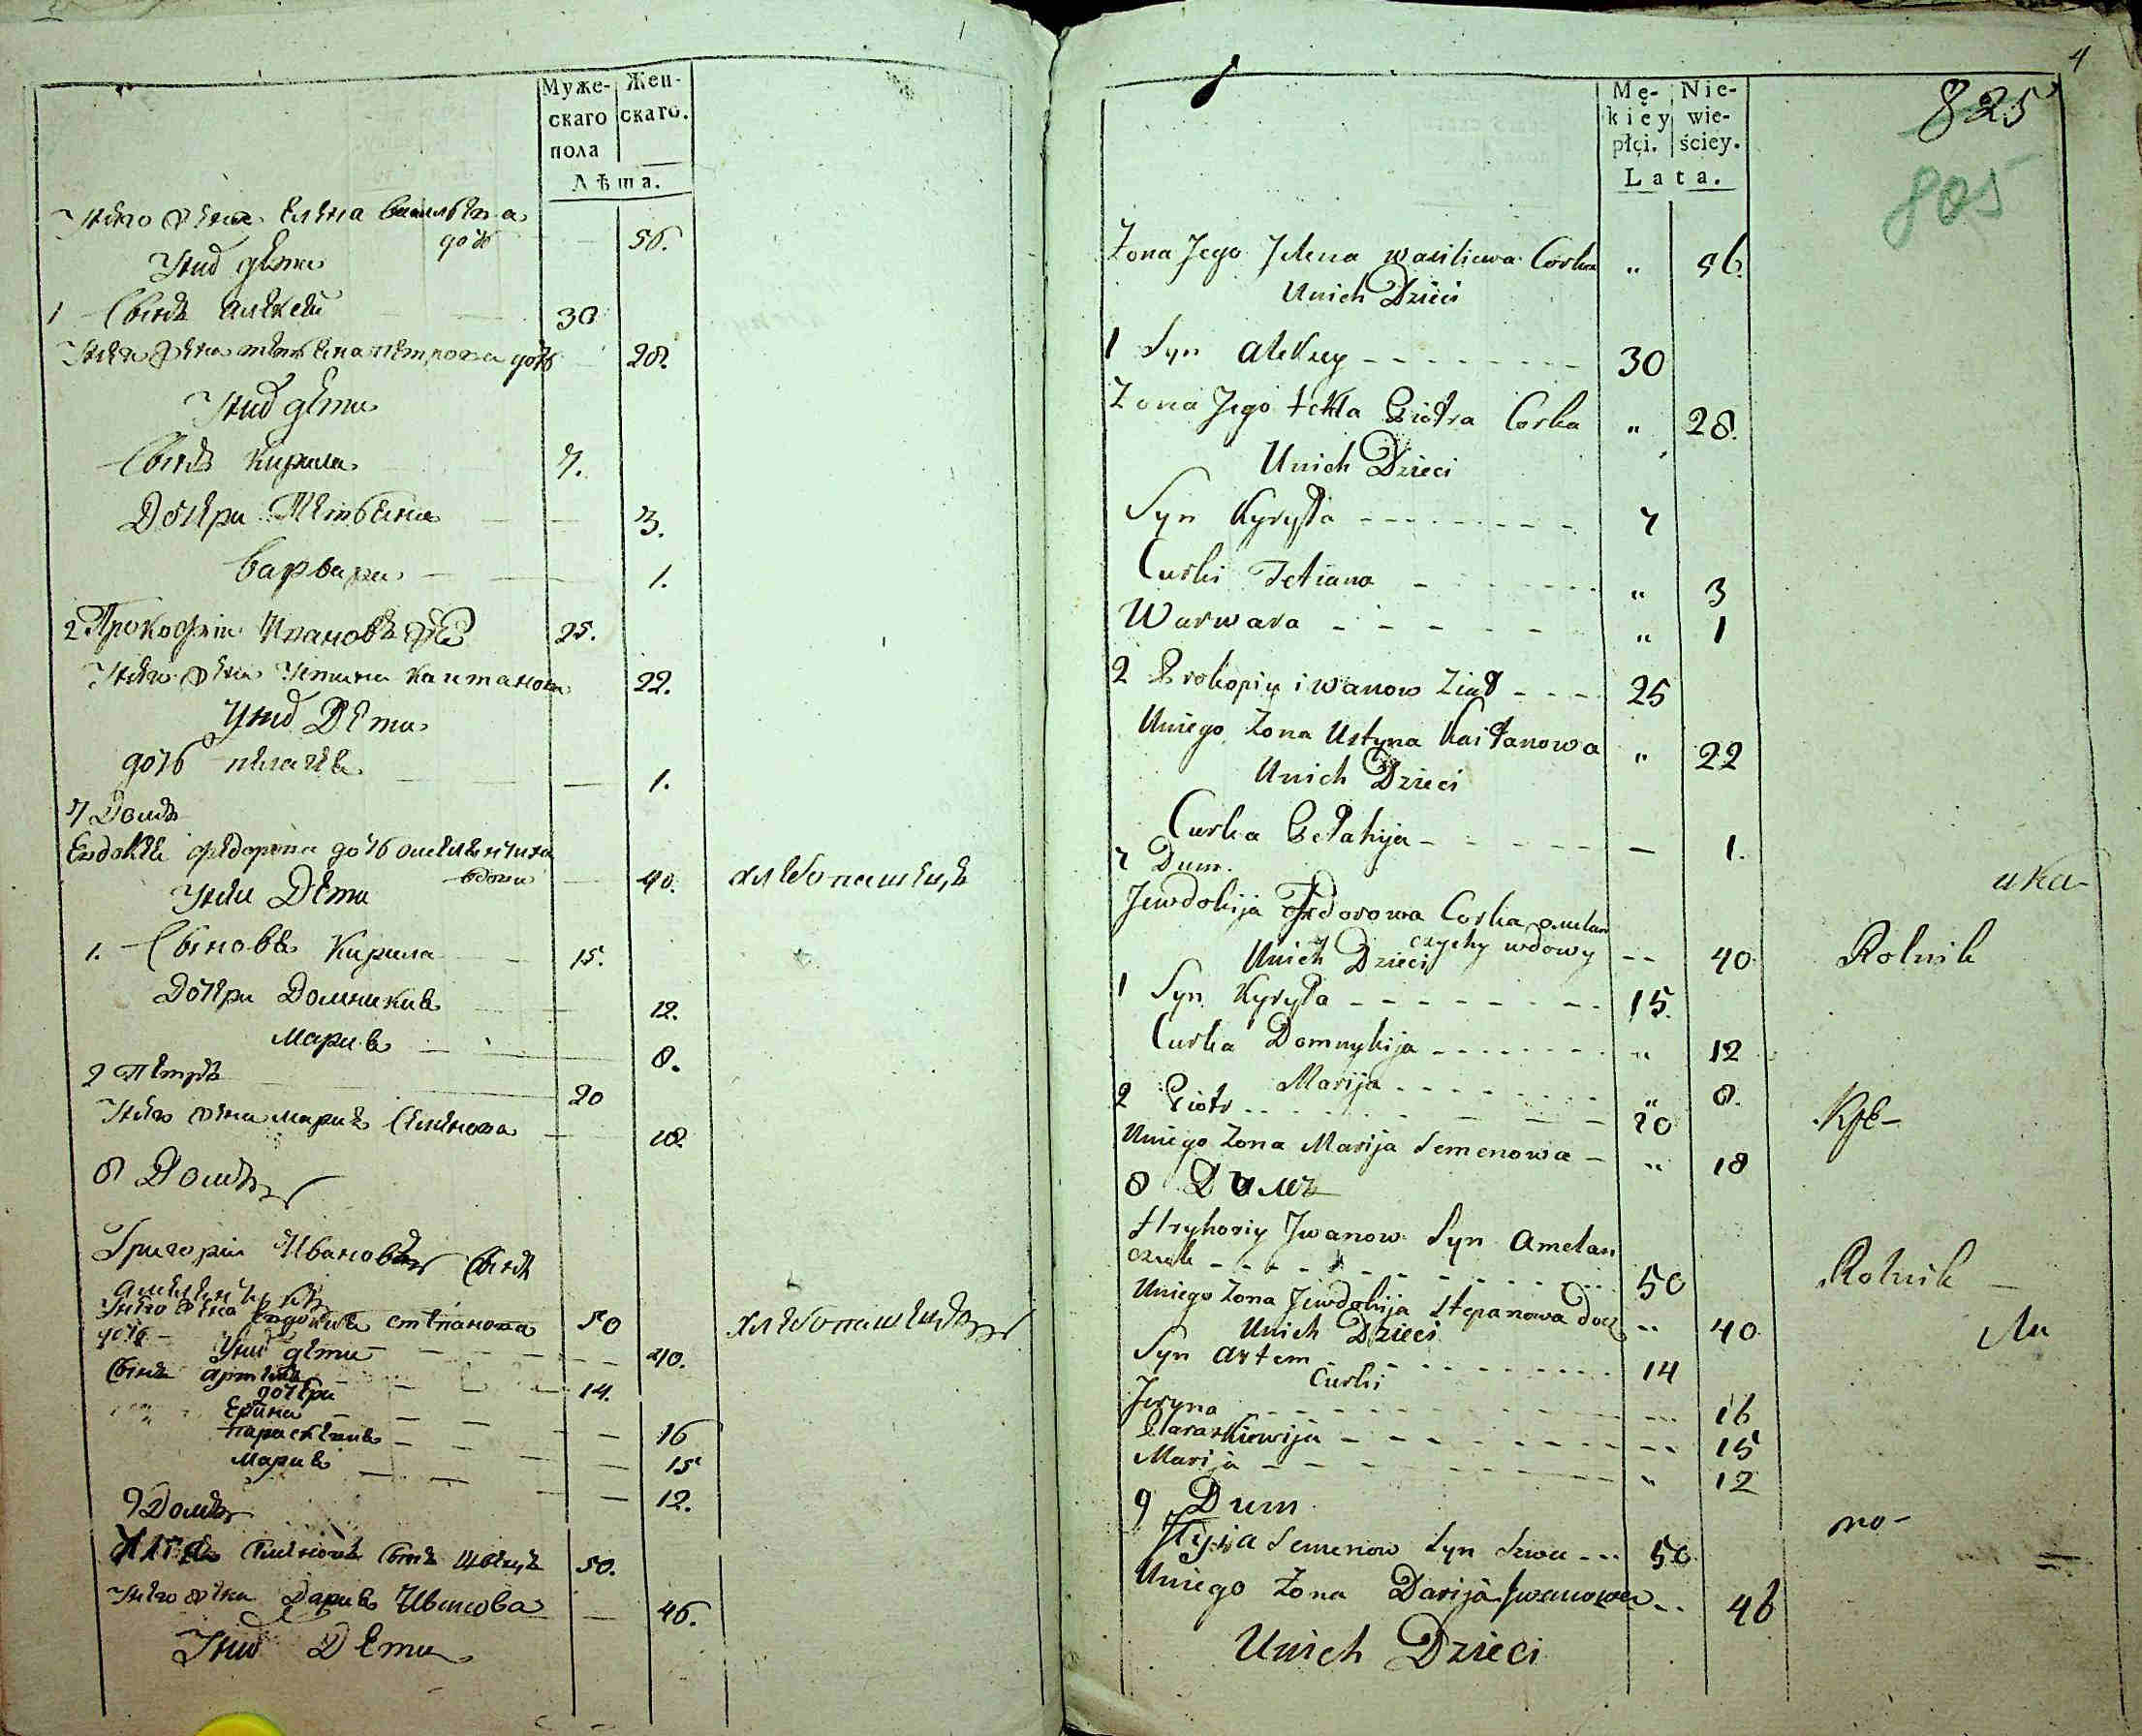 1
Муже-
скаго
пола
Жен-
скаго.
Лѣта.
Унего жена Елена васильева
дочь 56.
Уних дѣти
1 Сынъ Алексей 30
Унего жена тетьена петрова дочь 28.
Уних дѣти
Сынъ Кирила 7.
Дочери Тетьена 3.
Варвара 1.
2 Прокофии Ивановъ зять 25.
Унего жена Устина каитанова 22.
Уних Дѣти
дочь пелагея 1.
7 Домъ
Евдокея федорова дочь
вдова 40. хлебопашецъ
Унеи Дѣти
1. Сыновъ Кирила 15.
Дочери Домникия 12.
Мария 8.
2 Петръ 20
Унего жена Мария Семенова 18.
8 Домъ
Григории Ивановъ Сынъ
50 хлебопашецъ
Унего жена Евдокия степанова
дочь 40.
Уних дѣти
Сынъ артемъ 14.
дочери
Ерина 16
параскевия 15
Мария 12.
9 Домъ
Семеновъ Сынъ Швецъ 50.
Унего жена Дария Иванова 46.
Уних Дѣти
4
825
805
Mę-
kiey
płçi.
Nie-
wie-
ściey.
Lata.
Żona Jego Jelena wasiliewa Corka " 56
Unich Dzieci
1 Syn Aleksey 30
Żona Jego tekla Piotra Corka " 28.
Unich Dzieci
Syn Kyryła 7
Curki Tetiana " 3
Warwara " 1
2 Prokopiy iwanow Ziat 25
Uniego Żona Ustyna Kaitanowa " 22
Unich Dzieci
Curka Pełahija — 1.
7 Dum.
Jewdokija Fedorowa Corka omelan
czychy wdowy -- 40 Rolnik
Unich Dzieci
1 Syn Kyryła 15.
Curka Domnykija " 12
Marija " 8.
2 Piotr 20
Uniego Żona Marija Semenowa " 18
8 Думъ
Hryhoriy Jwanow Syn Amelan
czuk 50 Rolnik
Uniego Żona Jewdokija Stepanowa docz " 40
Unich Dzieci
Syn Artem 14
Curki
Jeryna 16
Paraskiewija 15
Marija " 12
9 Dum
Semenow Syn 50
Uniego Żona Darija Jwanowa 46
Unich Dzieci